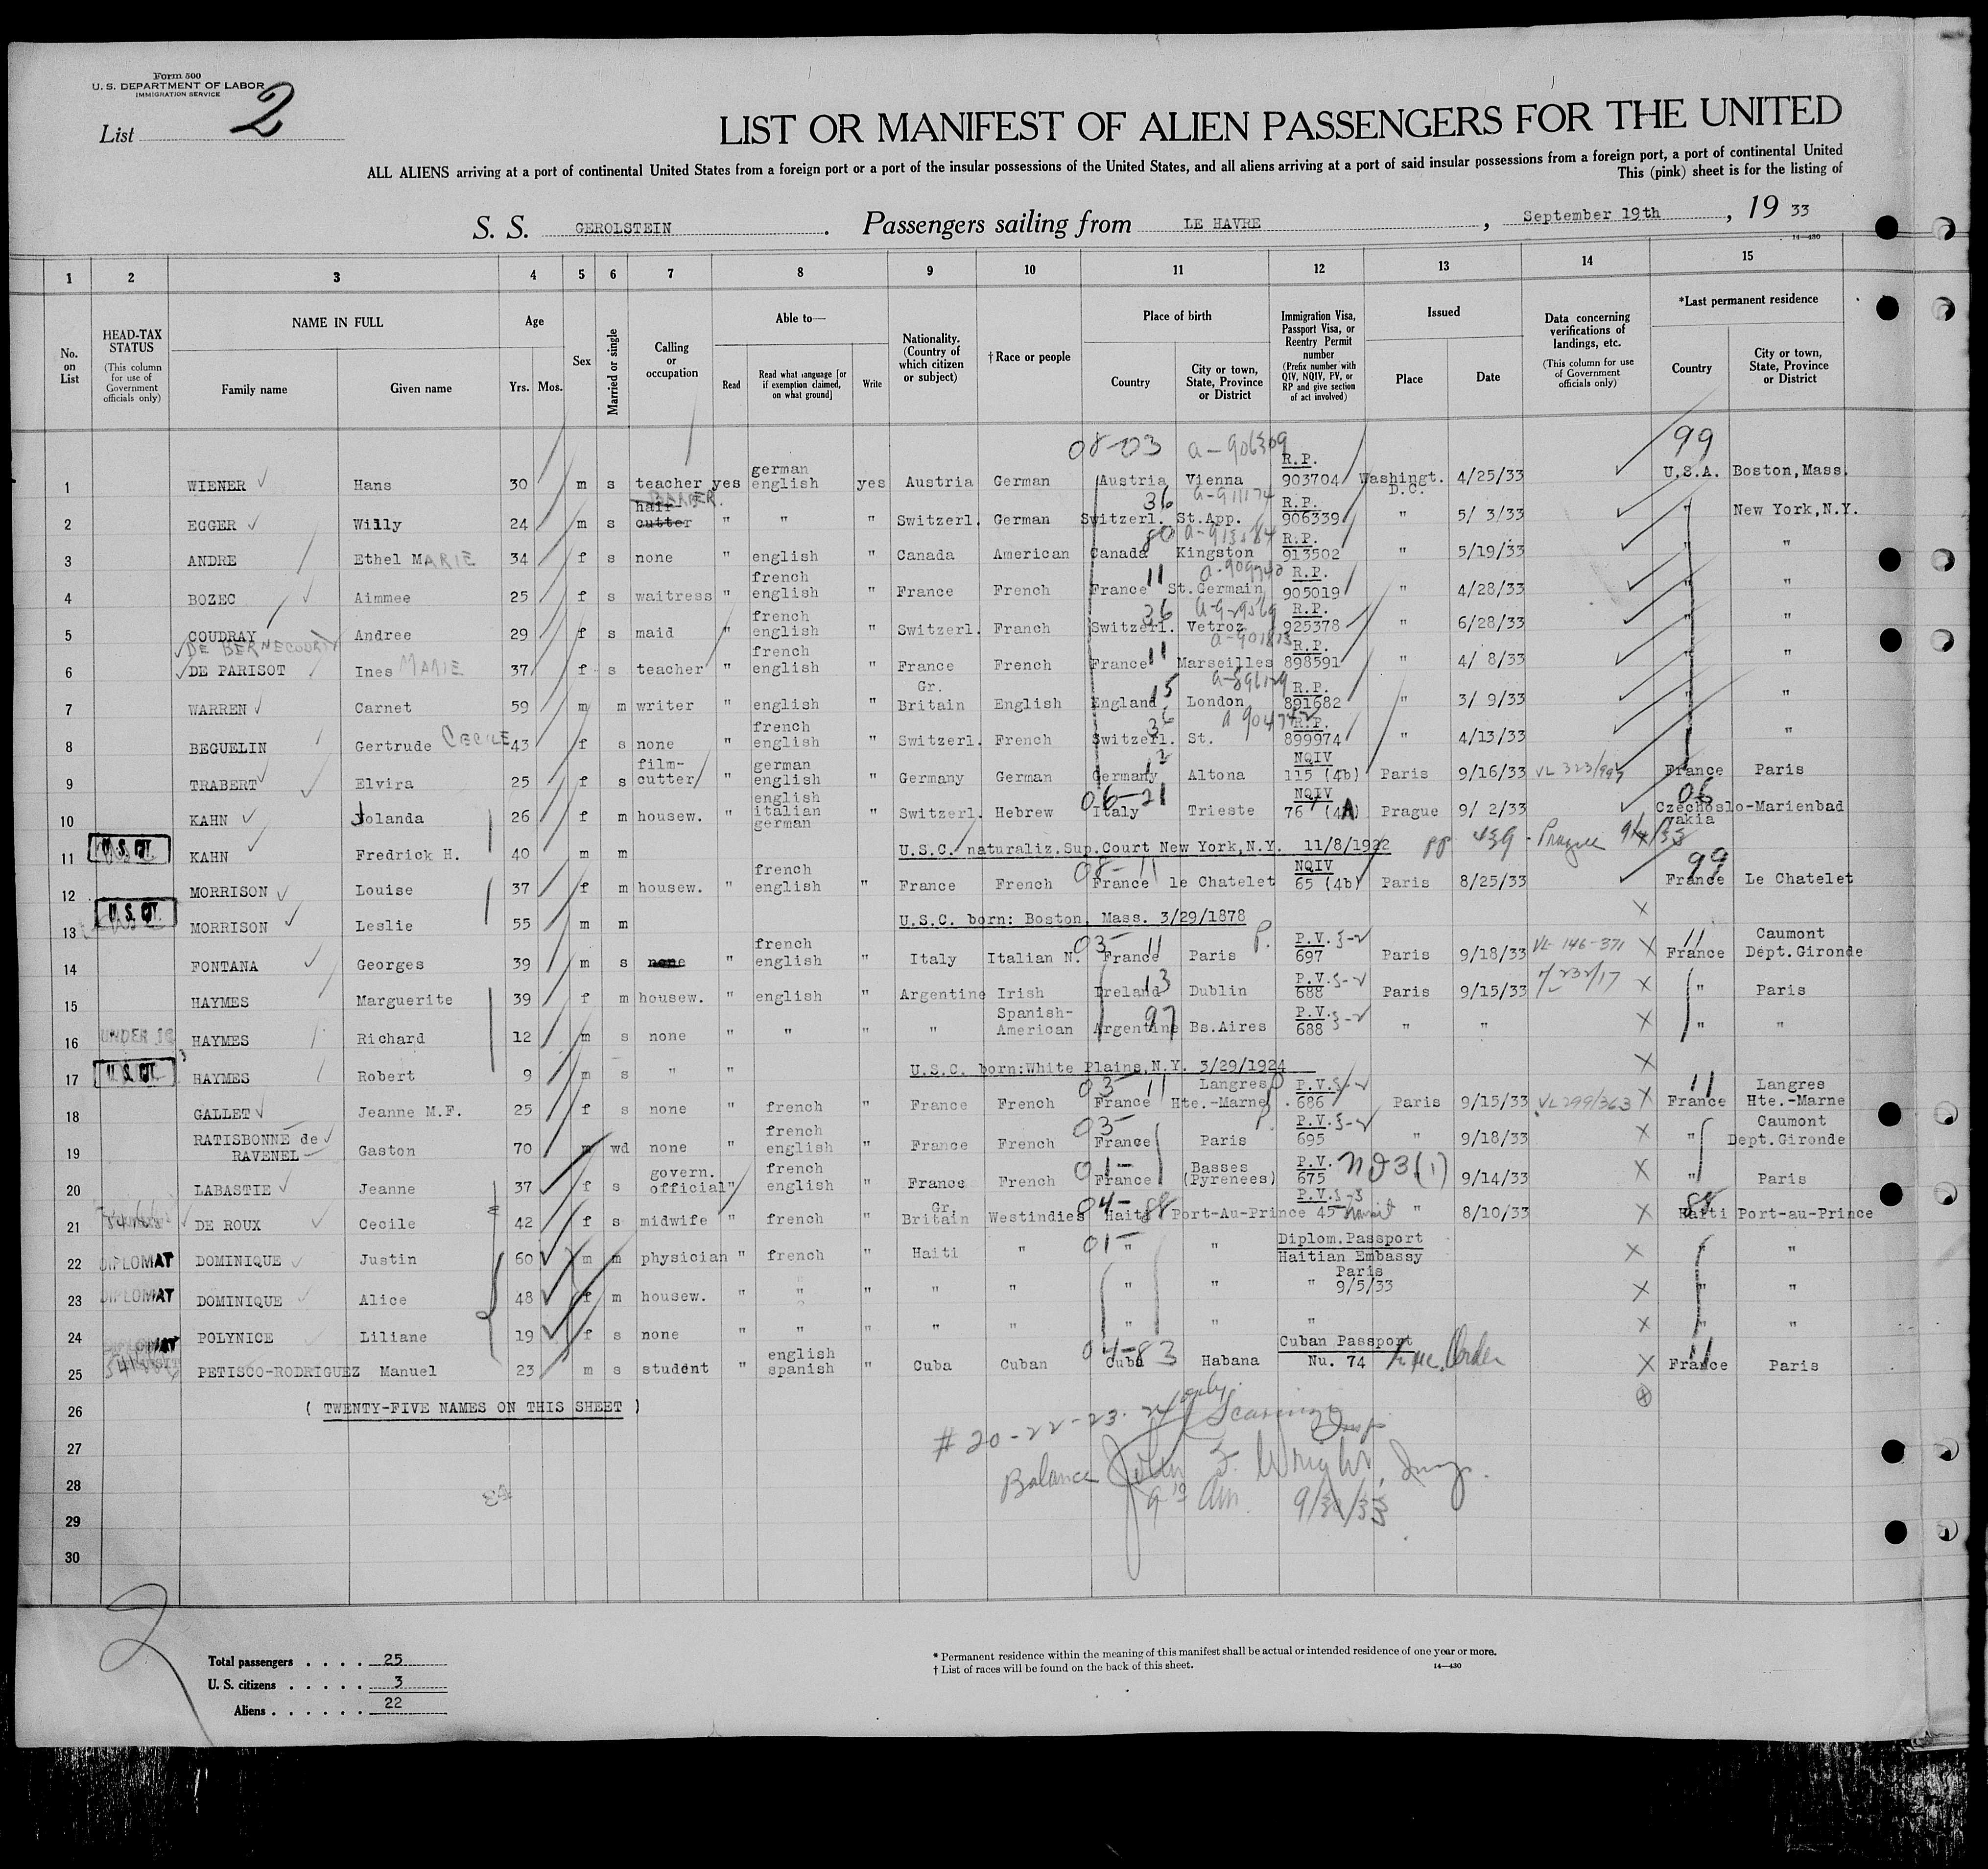 Form 500
U. S. DEPARTMENT OF LABOR
IMMIGRATION SERVICE
List 2
LIST OR MANIFEST OF ALIEN PASSENGERS FOR THE UNITED
ALL ALIENS arriving at a port of continental United States from a foreign port or a port of the insular possessions of the United States, and all aliens arriving at a port of said insular possessions from a foreign port, a port of continental United
This (pink) sheet is for the listing of
S. S. GEROLSTEIN. Passengers sailing from LE HAVRE, September 19th, 19 33
14—430
1 2 3 4 5 6 7 8 9 10 11 12 13 14 15
No. on List
HEAD-TAX STATUS (This column for use of Government officials only)
NAME IN FULL Family name Given name
Age Yrs. Mos.
Sex
Married or single
Calling or occupation
Able to— Read Read what language [or if exemption claimed, on what ground] Write
Nationality. (Country of which citizen or subject)
† Race or people
Place of birth Country City or town, State, Province or District
Immigration Visa, Passport Visa, or Reentry Permit number (Prefix number with QIV, NQIV, PV, or RP and give section of act involved)
Issued Place Date
Data concerning verifications of landings, etc. (This column for use of Government officials only)
*Last permanent residence Country City or town, State, Province or District
08-03 a-906309 99
1 WIENER Hans 30 m s teacher yes german english yes Austria German Austria Vienna R.P. 903704 Washingt. D.C. 4/25/33 U.S.A. Boston,Mass.
2 EGGER Willy 24 m s hair-cutter BARBER. " " " Switzerl. German Switzerl. 36 St.App. R.P. 906339 " 5/ 3/33 " New York,N.Y.
3 ANDRE Ethel MARIE 34 f s none " english " Canada American Canada Kingston R.P. 913502 " 5/19/33 " "
4 BOZEC Aimmee 25 f s waitress " french english " France French France 11 St.Germain R.P. 905019 " 4/28/33 " "
5 COUDRAY Andree 29 f s maid " french english " Switzerl. Franch Switzerl. 36 Vetroz R.P. 925378 " 6/28/33 " "
DE BERNECOURT
6 DE PARISOT Ines MARIE 37 f s teacher " french english " France French France 11 Marseilles R.P. 898591 " 4/ 8/33 " "
7 WARREN Carnet 59 m m writer " english " Gr. Britain English England 15 London R.P. 891682 " 3/ 9/33 " "
8 BEGUELIN Gertrude CECILE 43 f s none " french english " Switzerl. French Switzerl. 36 St. R.P. 899974 " 4/13/33 " "
9 TRABERT Elvira 25 f s film-cutter " german english " Germany German Germany 12 Altona NQIV 115 (4b) Paris 9/16/33 France Paris
10 KAHN Jolanda 26 f m housew. " english italian german " Switzerl. Hebrew 06-21 Italy Trieste NQIV 76 (4A) Prague 9/ 2/33 06 Czechoslo-vakia Marienbad
11 U.S. CIT. KAHN Fredrick H. 40 m m U.S.C. naturaliz.Sup.Court New York,N.Y. 11/8/1922 pp 439 - Prague 9/4/33
12 MORRISON Louise 37 f m housew. " french english " France French 08-11 France le Chatelet NQIV 65 (4b) Paris 8/25/33 99 France Le Chatelet
13 U.S. CIT. MORRISON Leslie 55 m m U.S.C. born: Boston, Mass. 3/29/1878
14 FONTANA Georges 39 m s none " french english " Italy Italian N. 03-11 France Paris P.V. 3-2 697 Paris 9/18/33 VL 146-371 11 France Caumont Dépt.Gironde
15 HAYMES Marguerite 39 f m housew. " english " Argentine Irish Ireland 13 Dublin P.V. 3-2 688 Paris 9/15/33 " Paris
16 UNDER 16 HAYMES Richard 12 m s none " " " " Spanish-American Argentine 97 Bs.Aires P.V. 3-2 688 " " " "
17 U.S. CIT. HAYMES Robert 9 m s " " U.S.C. born:White Plains,N.Y. 3/29/1924
18 GALLET Jeanne M.F. 25 f s none " french " France French 03-11 France Langres Hte.-Marne P.V. 3-2 686 Paris 9/15/33 VL 299/363 11 France Langres Hte.-Marne
19 RATISBONNE de RAVENEL Gaston 70 m wd none " french english " France French 03- France Paris P.V. 3-2 695 " 9/18/33 " Caumont Dept.Gironde
20 LABASTIE Jeanne 37 f s govern. official " french english " France French 01- France Basses (Pyrenees) P.V. 675 NO 3(1) 9/14/33 " Paris
21 DE ROUX Cecile 42 f s midwife " french " Gr. Britain Westindies 04-88 Haiti Port-Au-Prince P.V. 3-3 45 Transit " 8/10/33 88 Haiti Port-au-Prince
22 DIPLOMAT DOMINIQUE Justin 60 m m physician " french " Haiti " 01- " " Diplom.Passport Haitian Embassy Paris " "
23 DIPLOMAT DOMINIQUE Alice 48 f m housew. " " " " " " " " 9/5/33 " "
24 DIPLOMAT POLYNICE Liliane 19 f s none " " " " " " " " " "
25 PETISCO-RODRIGUEZ Manuel 23 m s student " english spanish " Cuba Cuban 04-83 Cuba Habana Cuban Passport Nu. 74 11 France Paris
26 ( TWENTY-FIVE NAMES ON THIS SHEET )
27 # 20-22-23-24 only.
28 Balance John F. Wright, Insp.
29 9 10 Am. 9/30/33
30
2
Total passengers . . . . 25
U. S. citizens . . . . . 3
Aliens . . . . . . 22
* Permanent residence within the meaning of this manifest shall be actual or intended residence of one year or more.
† List of races will be found on the back of this sheet.
14—430